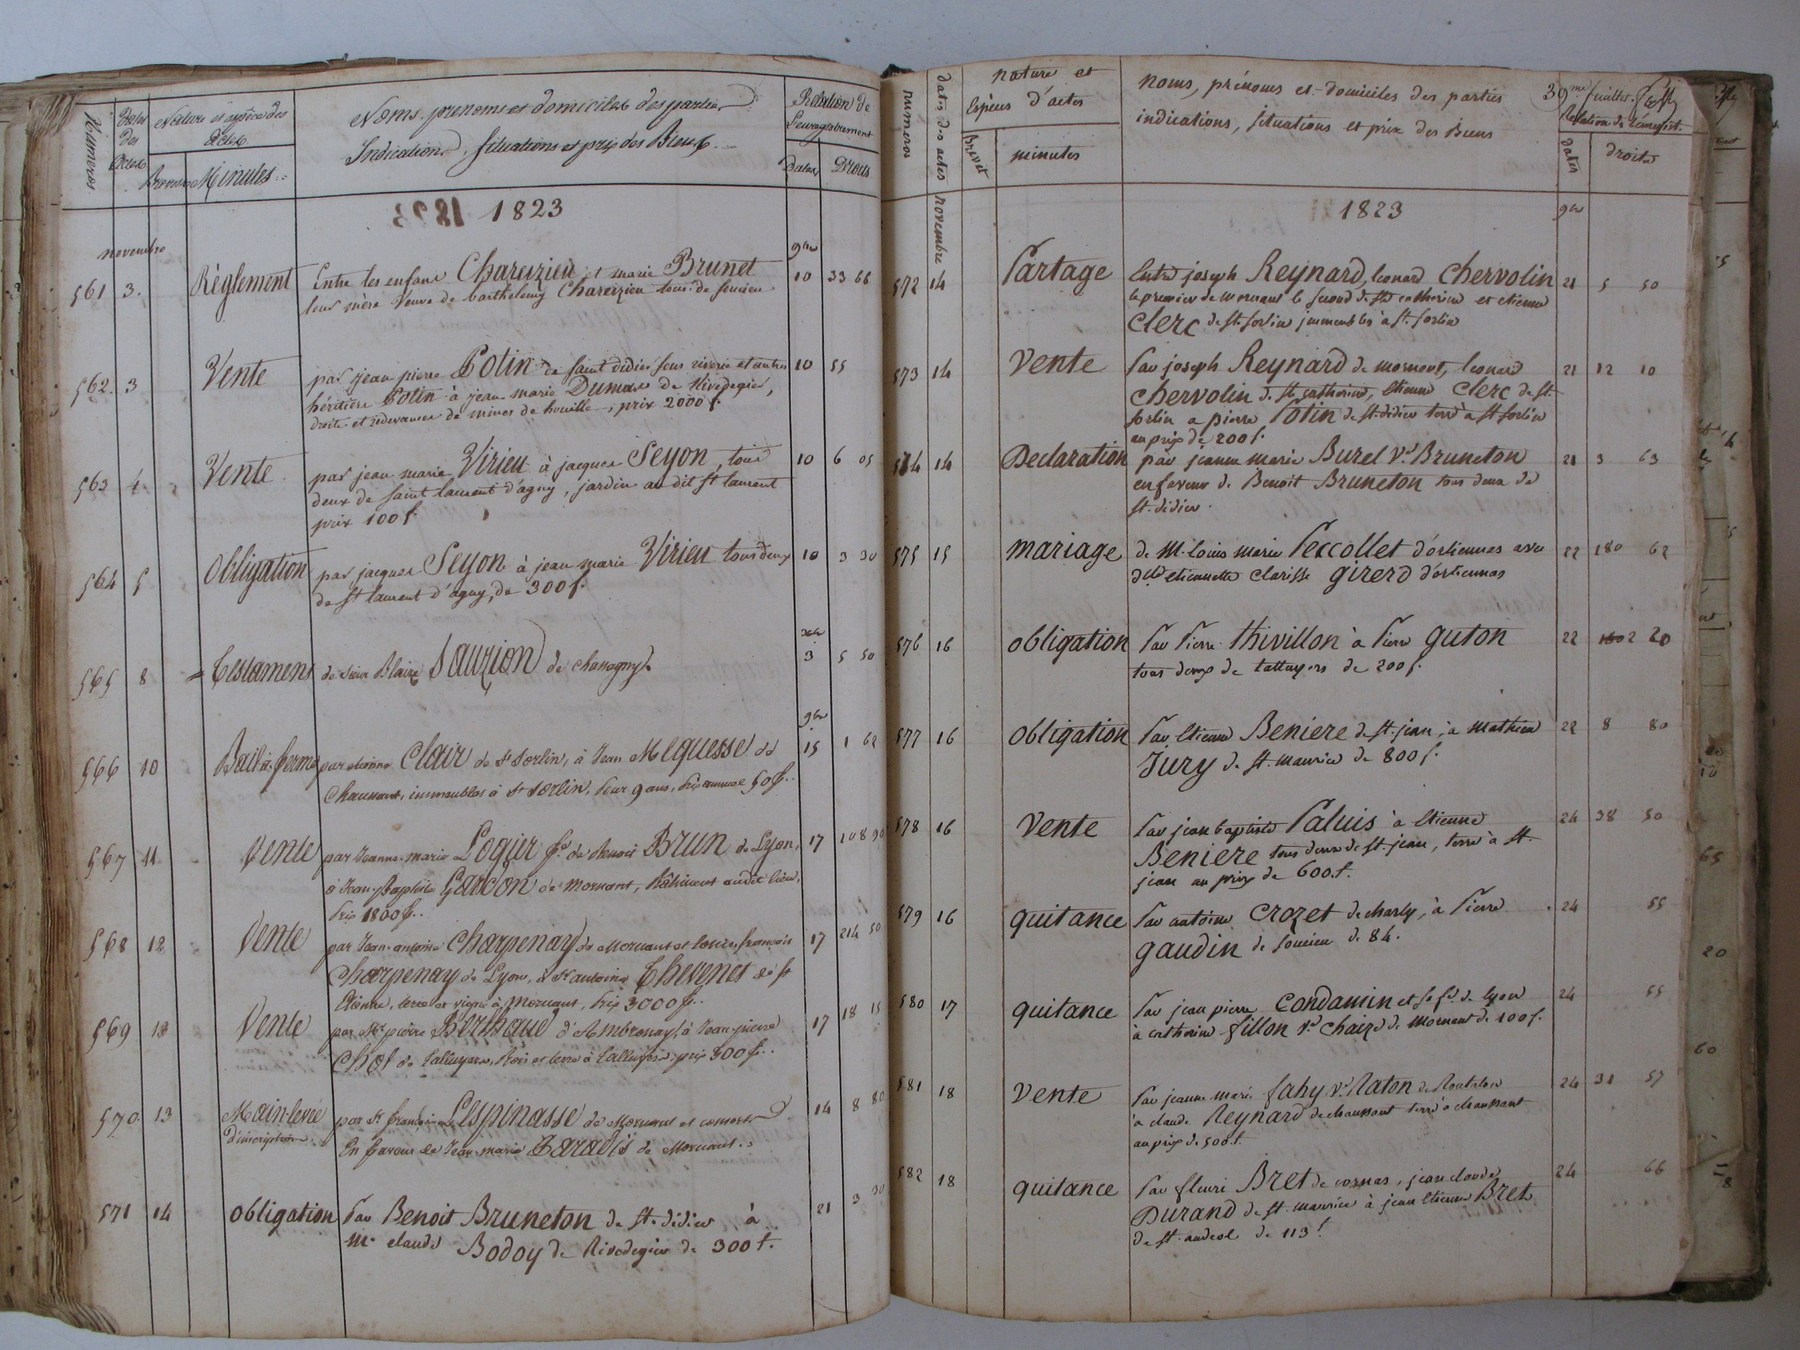 Numéros
Dates des Actes
Nature et espèce des Actes
Brevets Minutes
Noms prenoms et domiciles des parties
Indications, situations et prix des Biens
Relation de l'enregistrement
Dates Droits
1823
novembre 9bre
561 3. Règlement Entre les enfans Chareizieu et marie Brunet 10 33 66
leur mère veuve de barthelemy Chareizieu tous de soucieu
562. 3 Vente par jean pierre Potin de saint didier sous riverie et autres 10 55
héritiers Potin à jean marie Dumas de Rivedegier,
droits et redevances de mines de houille, prix 2000 f.
563 4 Vente par jean marie Virieu à jacques Seyon, tous 10 6 05
deux de saint laurent d'agny, jardin au dit st laurent
prix 100 f.
564 5 Obligation par jacques Seyon à jean marie Virieu tous deux 10 3 30
de st laurent d'agny, de 300 f.
xbre
565 8 Testament de sieur Blaise Sauzion de chassagny 3 5 50
9bre
566 10 Bail à ferme par etienne Clair de St Sorlin, à Jean Mequesse de 15 1 62
Chaussant, immeubles à St Sorlin, pour 9 ans, prix annuel 50 f.
567 11 Vente par Jeanne marie Logier fe de benoit Brun de Lyon, 17 108 90
à Jean-Baptiste Garcon de Mornant, Bâtiment audit lieu,
Prix 1800 f.
568 12 Vente par Jean antoine Charpenay de Mornant et Louis françois 17 214 50
Charpenay de Lyon, à St antoine Thevenet de St
Etienne, terre et vigne à Mornant, Prix 3000 f.
569 13 Vente par Mr pierre Berthaud d'Ambronay, à Jean pierre 17 18 15
Chol de Talluyers, Bois et terre à Talluyers, prix 300 f.
570 13 Main-levée par Sr françois Lespinasse de Mornant et consorts 14 8 80
d'inscription En faveur de Jean marie Paradis de Mornant.
571 14 Obligation Par Benoit Bruneton de st. didier à 21 3 30
Mr claude Bodoy de Rivedegier de 300 f.
numeros
dates des actes
nature et espèces d'actes
Brevet minutes
noms, prénoms et domiciles des parties
indications, situations et prix des Biens
39me feuillet.
Relation de l'enregist.
dates droits
novembre 1823 9bre
572 14 Partage Entre joseph Reynard, leonard Chervolin 21 5 50
le premier de mornant le second de ste catherine et etienne
Clerc de st. sorlin immeubles à st. sorlin
573 14 Vente Par joseph Reynard de mornant, leonard 21 12 10
Chervolin de ste catherine, etienne Clerc de st.
sorlin a pierre Potin de st. didier terre à st sorlin
au prix de 200 f.
574 14 Declaration par jeanne marie Burel ve Bruneton 21 3 63
en faveur de Benoit Bruneton tous deux de
st. didier.
575 15 mariage de Mr Louis marie Peccollet d'orliennas avec 22 180 62
dlle etiennette Clarisse Girerd d'orliennas
576 16 obligation Par Pierre Thivillon à Pierre Guyon 22 2 20
tous deux de talluyers de 200 f.
577 16 obligation Par Etienne Beniere de st. jean, à mathieu 22 8 80
Jury de st. maurice de 800 f.
578 16 Vente Par jean baptiste Paluis à Etienne 24 38 50
Beniere tous deux de st. jean, terre à st.
jean au prix de 600 f.
579 16 quitance Par antoine Crozet de charly, à Pierre 24 55
gaudin de soucieu de 84.
580 17 quitance Par jean pierre Condamin et sa fe de lyon 24 55
à catherine fillon ve Chaize de Mornant de 100 f.
581 18 Vente Par jeanne marie fahy ve Raton de Rontalon 24 31 57
à claude Reynard de chaussant terre à chaussant
au prix de 500 f.
582 18 quitance Par fleuri Bret de cornas, jean claude 24 66
Durand de st. maurice à jean Etienne Bret
de st. andeol de 113 f.